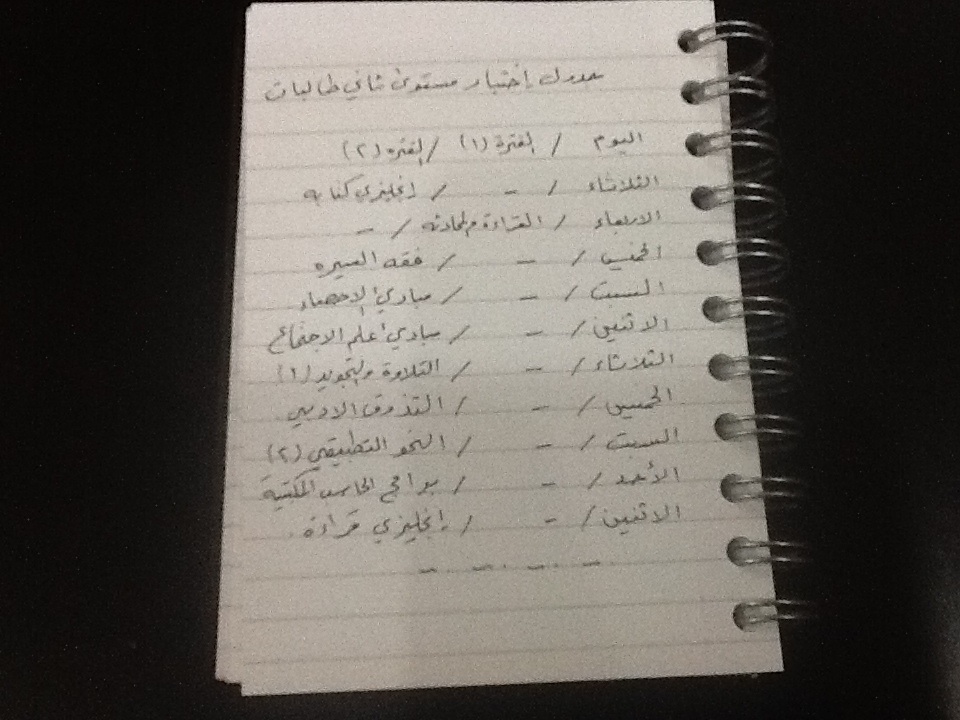 جدول إختبار مستوى ثاني طالبات
اليوم / الفترة (١) / الفتره (٢)
الثلاثاء / - / إنجليزي كتابه
الاربعاء / القراءة والمحادثه / -
الخميس / - / فقه السيره
السبت / - / مبادئ الإحصاء
الاثنين / - / مبادئ علم الاجتماع
الثلاثاء / - / التلاوة والتجويد (١)
الخميس / - / التذوق الادبي
السبت / - / النحو التطبيقي (٢)
الأحد / - / برامج الحاسب المكتبية
الاثنين / - / إنجليزي قراءة